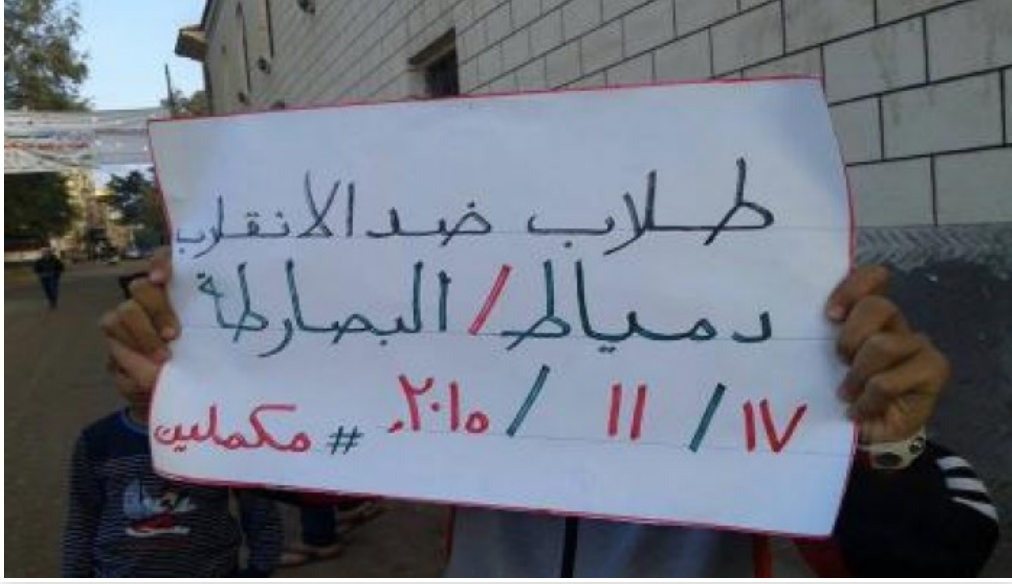 طلاب ضد الانقلاب
دمياط / البصارطة
١٧ / ١١ / ٢٠١٥ # مكملين